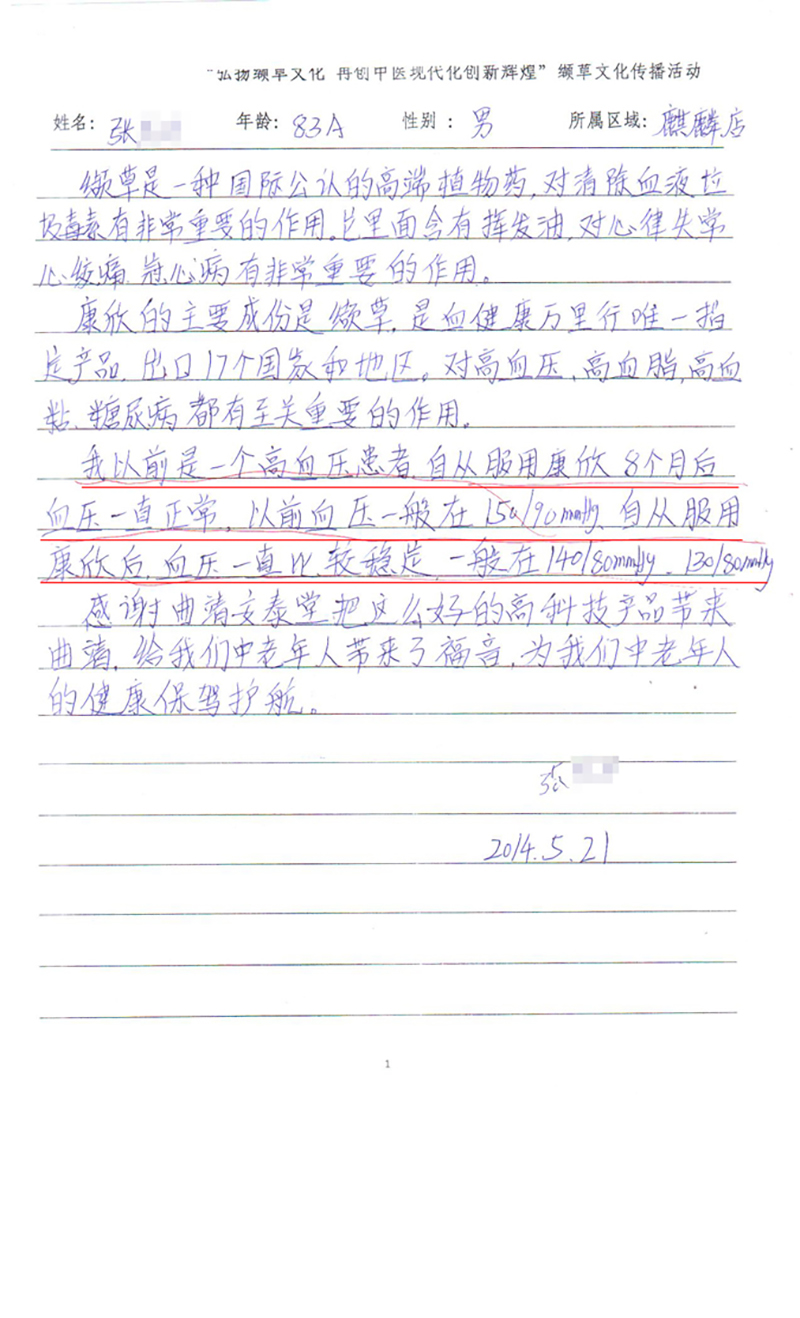 “弘扬缬草文化 再创中医现代化创新辉煌” 缬草文化传播活动
姓名: 张 年龄: 83A 性别 : 男 所属区域: 麒麟店
缬草是一种国际公认的高端植物药,对清除血液垃
圾毒素有非常重要的作用。它里面含有挥发油,对心律失常
心绞痛.冠心病有非常重要的作用。
康欣的主要成份是缬草,是血健康万里行唯一指
定产品,出口17个国家和地区。对高血压、高血脂,高血
粘、糖尿病都有至关重要的作用。
我以前是一个高血压患者,自从服用康欣8个月后
血压一直正常。以前血压一般在150/90mmHg、自从服用
康欣后,血压一直比较稳定,一般在140/80mmHg、130/80mmHg
感谢曲靖安泰堂把这么好的高科技产品带来
曲靖,给我们中老年人带来了福音,为我们中老年人
的健康保驾护航。
张
2014.5.21
1